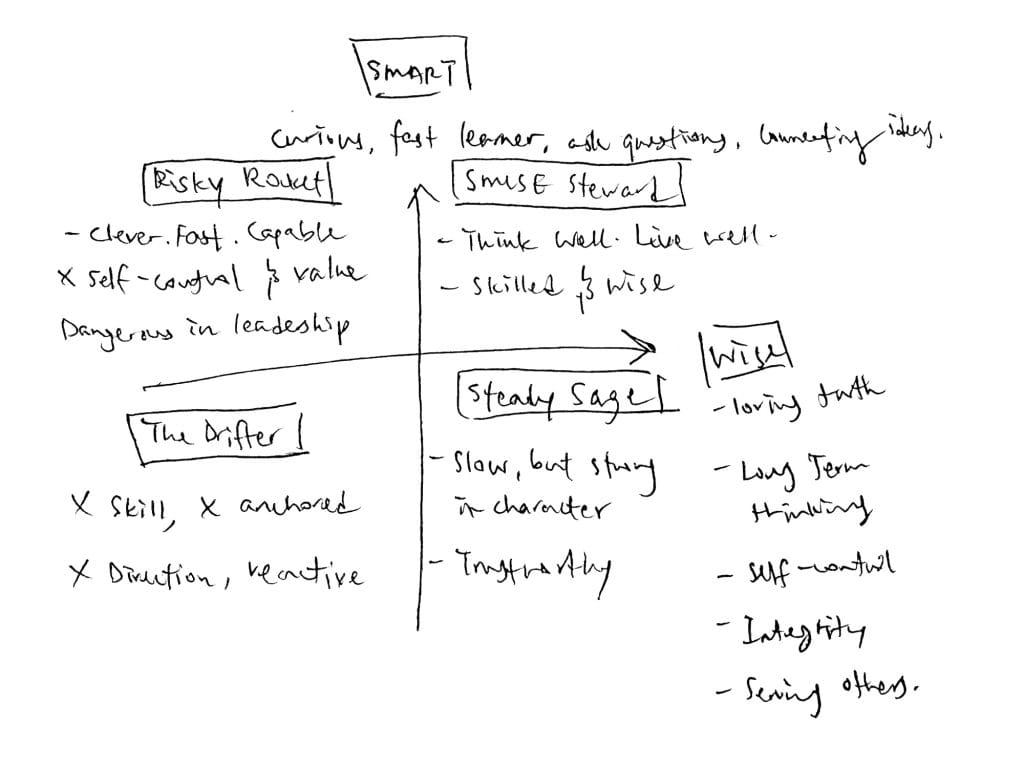 SMART
Curious, fast learner, ask questions, Connecting ideas.
Risky Rocket
- Clever. Fast. Capable
X Self-control & value
Dangerous in leadeship
SMISE Steward
- Think well. Live well.
- Skilled & wise
Wise
- loving truth
- Long Term
thinking
- Self-control
- Integrity
- Serving others.
The Drifter
X Skill, X anchored
X Direction, reactive
Steady Sage
- Slow, but strong
in character
- Trustworthy